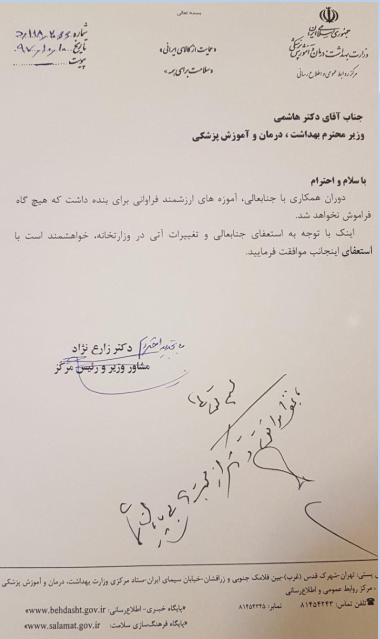 بسمه تعالی
جمهوری اسلامی ایران
وزارت بهداشت، درمان و آموزش پزشکی
مرکز روابط عمومی و اطلاع رسانی
«حمایت از کالای ایرانی»
«سلامت برای همه»
شماره
تاریخ ۹۷/۱۰/۱۰
پیوست
جناب آقای دکتر هاشمی
وزیر محترم بهداشت، درمان و آموزش پزشکی
با سلام و احترام
دوران همکاری با جنابعالی، آموزه های ارزشمند فراوانی برای بنده داشت که هیچ گاه
فراموش نخواهد شد.
اینک با توجه به استعفای جنابعالی و تغییرات آتی در وزارتخانه، خواهشمند است با
استعفای اینجانب موافقت فرمایید.
با تجدید احترام
دکتر زارع نژاد
مشاور وزیر و رئیس مرکز
بسمه تعالی
پستی: تهران-شهرک قدس (غرب)-بین فلامک جنوبی و زرافشان-خیابان سیمای ایران-ستاد مرکزی وزارت بهداشت، درمان و آموزش پزشکی
- مرکز روابط عمومی و اطلاع‌رسانی
تلفن تماس: ۸۱۴۵۴۲۴۳ نمابر: ۸۱۴۵۴۳۴۵ «پایگاه خبری - اطلاع‌رسانی: www.behdasht.gov.ir
«پایگاه فرهنگ‌سازی سلامت: www.salamat.gov.ir